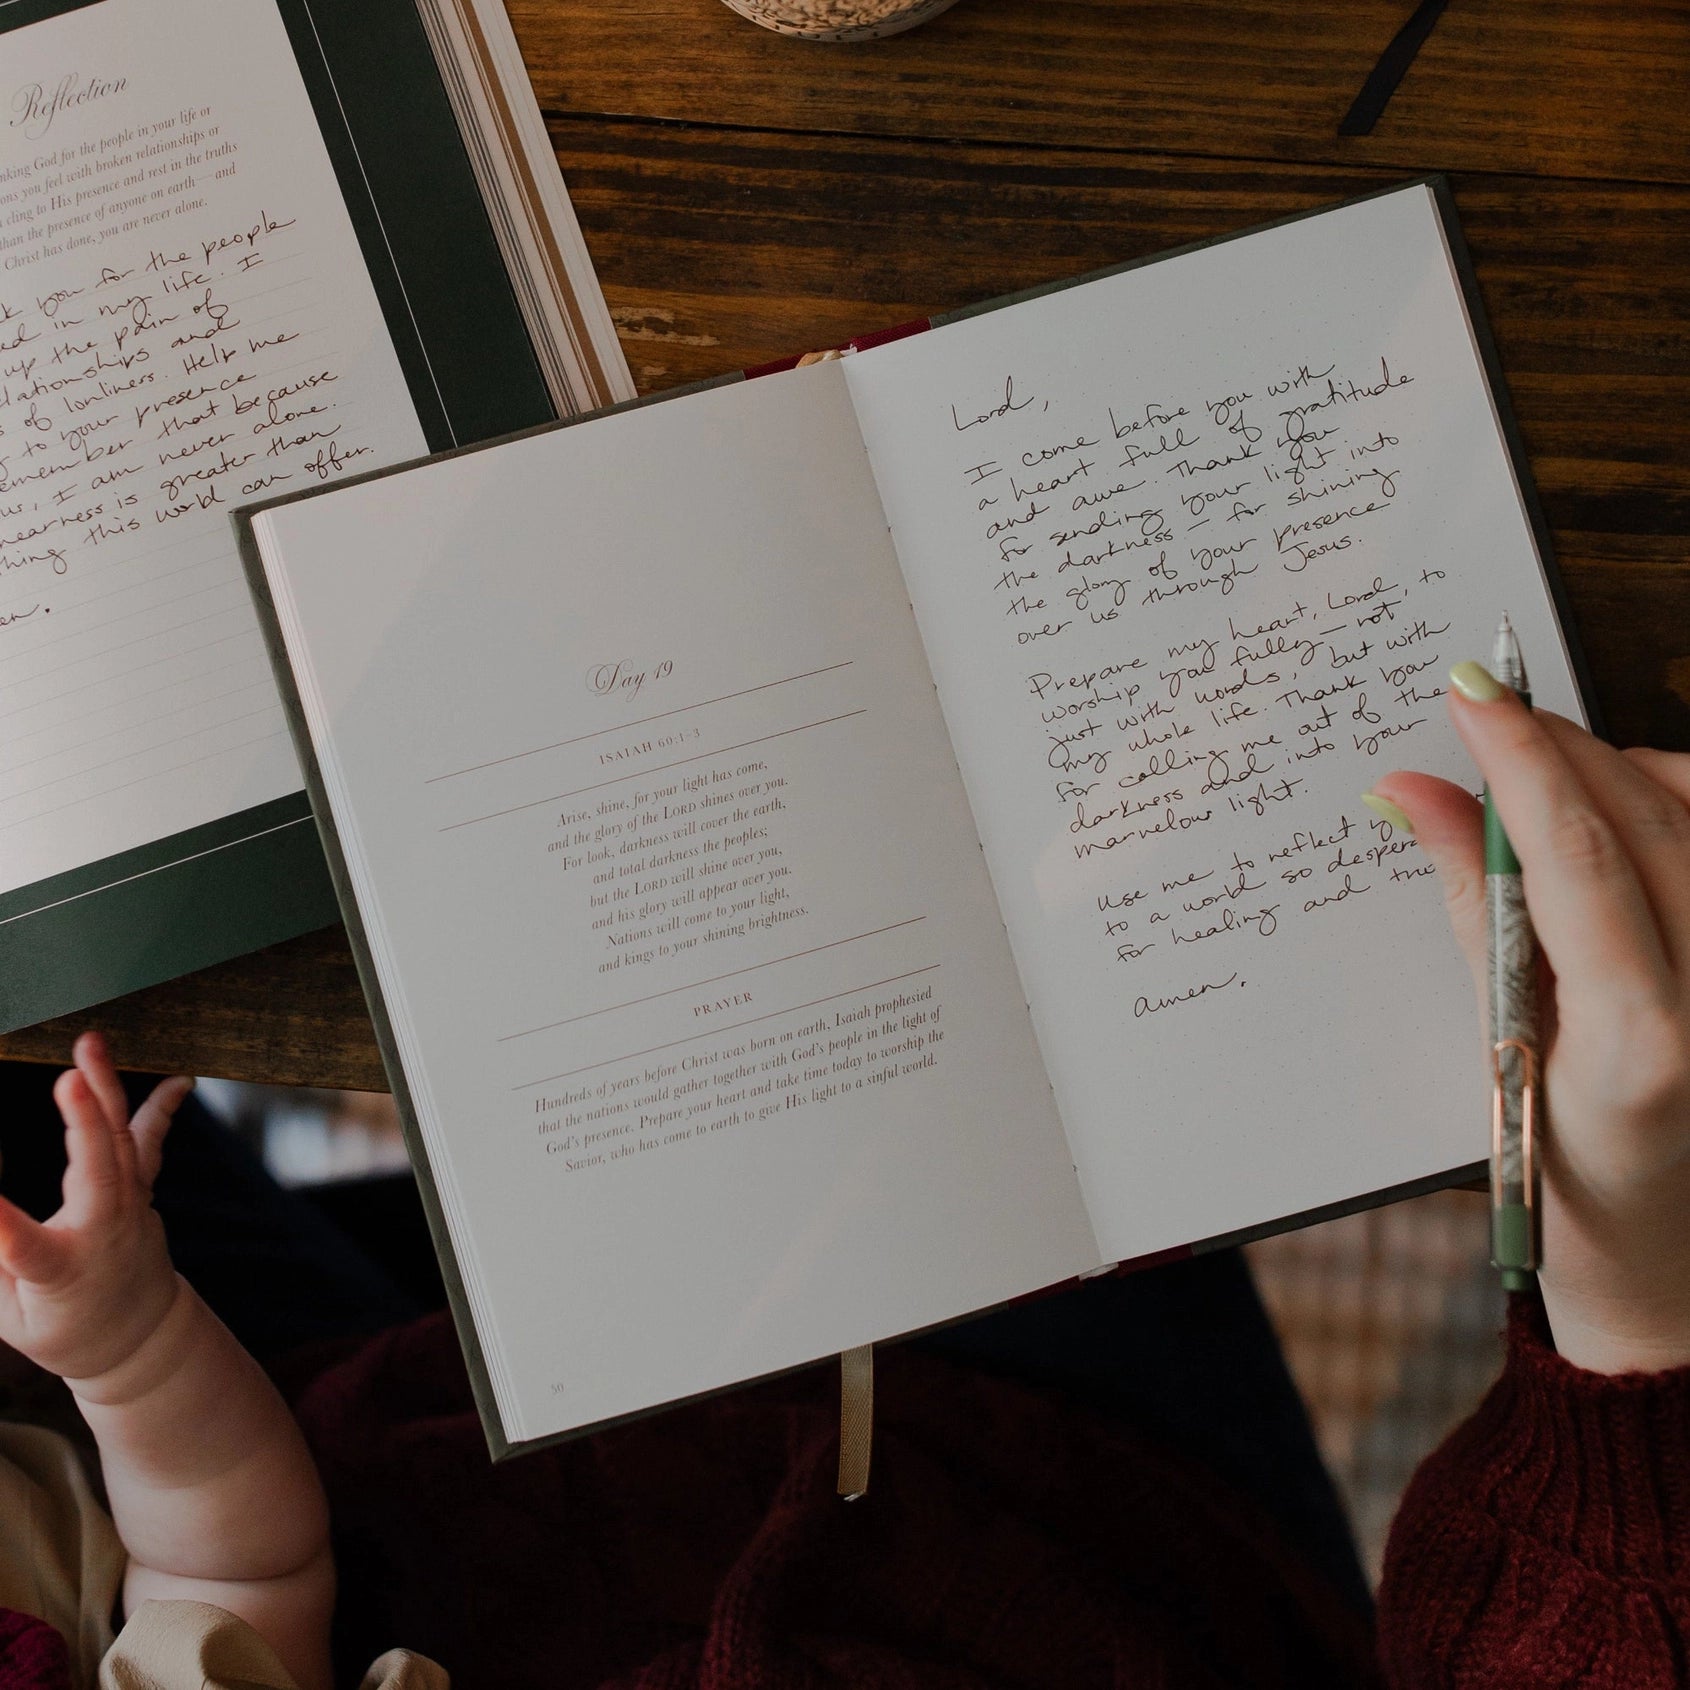 Reflection
nking God for the people in your life or
ons you feel with broken relationships or
cling to His presence and rest in the truths
than the presence of anyone on earth—and
Christ has done, you are never alone.
k you for the people
ed in my life. I
up the pain of
lationships and
s of lonliness. Help me
to your presence
emember that because
us, I am never alone.
nearness is greater than
thing this world can offer.
en.
Day 19
ISAIAH 60:1–3
Arise, shine, for your light has come,
and the glory of the LORD shines over you.
For look, darkness will cover the earth,
and total darkness the peoples;
but the LORD will shine over you,
and his glory will appear over you.
Nations will come to your light,
and kings to your shining brightness.
PRAYER
Hundreds of years before Christ was born on earth, Isaiah prophesied
that the nations would gather together with God's people in the light of
God's presence. Prepare your heart and take time today to worship the
Savior, who has come to earth to give His light to a sinful world.
50
Lord,
I come before you with
a heart full of gratitude
and awe. Thank you
for sending your light into
the darkness — for shining
the glory of your presence
over us through Jesus.
Prepare my heart, Lord, to
worship you fully — not
just with words, but with
my whole life. Thank you
for calling me out of the
darkness and into your
marvelous light.
Use me to reflect y
to a world so despera
for healing and tru
Amen.